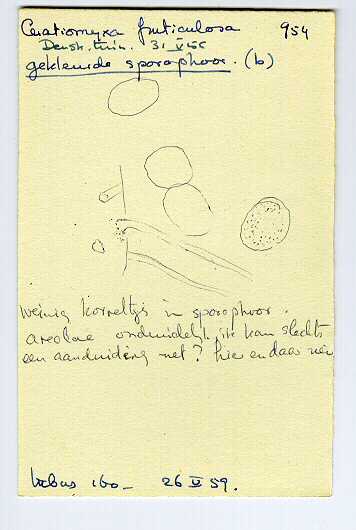 Ceratiomyxa fruticulosa 954
31 V
gekleurde sporophoor. (b)
weinig korreltjs in sporophoor.
areolae onduidelijk, ik kan slechts
een aanduiding net? hier en daar
160 – 26 59.